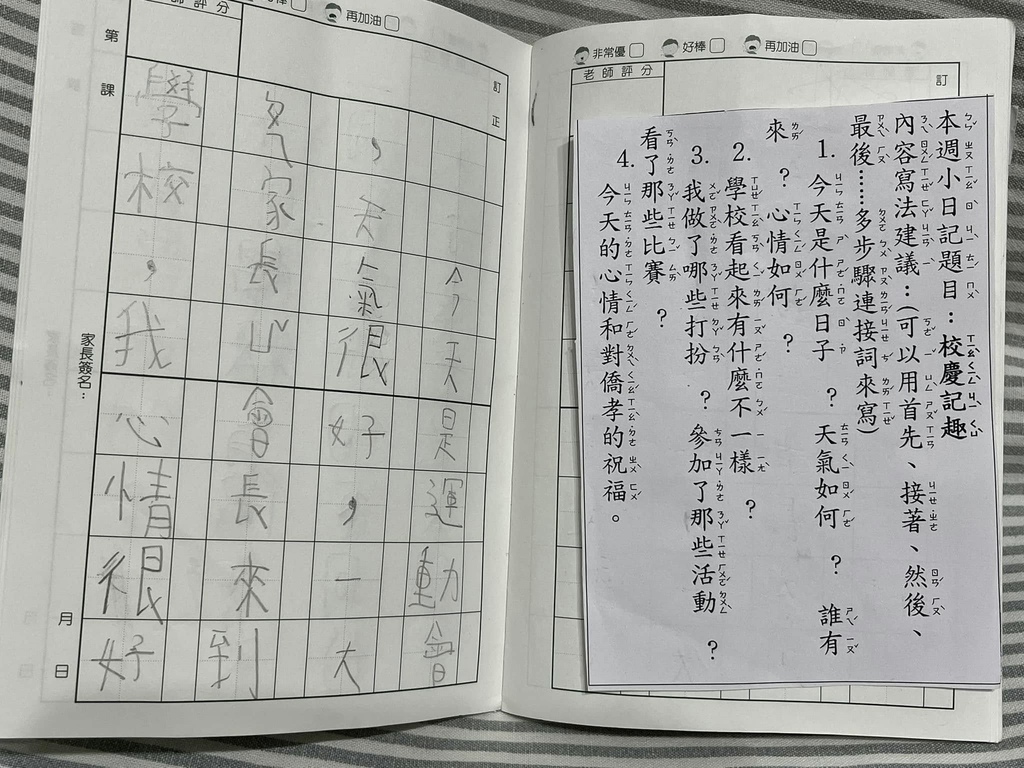 非常優 好棒 再加油
老師評分
訂
本週小日記題目：校慶記趣
內容寫法建議：（可以用首先、接著、然後、
最後……多步驟連接詞來寫）
1. 今天是什麼日子？天氣如何？誰有
來？心情如何？
2. 學校看起來有什麼不一樣？
3. 我做了哪些打扮？參加了那些活動？
看了那些比賽？
4. 今天的心情和對僑孝的祝福。
棒 再加油
師評分
訂正
今天是運動會
，天氣很好，一大
家長會長來到
學校，我心情很好
第 課
家長簽名：
月 日